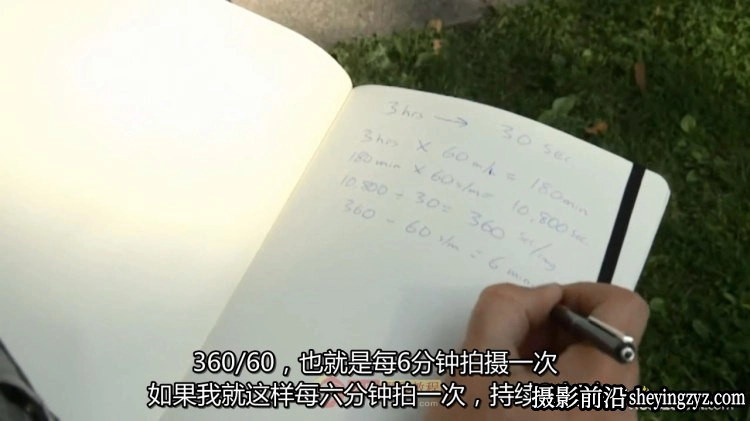 3 hrs → 30 sec
3 hrs x 60 m/h = 180 min
180 min x 60 s/m = 10.800 sec
10.800 ÷ 30 = 360 sec/img
360 ÷ 60 s/m = 6 min
360/60，也就是每6分钟拍摄一次
如果我就这样每六分钟拍一次，持续
摄影前沿 sheyingzyz.com